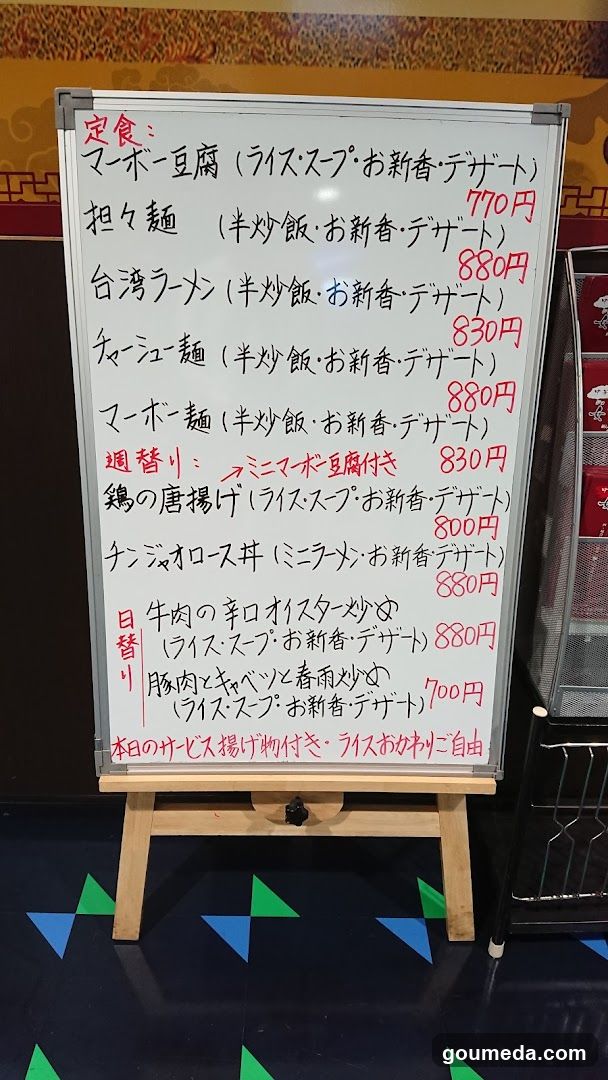 定食:
マーボー豆腐(ライス・スープ・お新香・デザート)
770円
担々麺 (半炒飯・お新香・デザート)
880円
台湾ラーメン(半炒飯・お新香・デザート)
830円
チャーシュー麺(半炒飯・お新香・デザート)
880円
マーボー麺(半炒飯・お新香・デザート)
週替り: →ミニマーボー豆腐付き 830円
鶏の唐揚げ(ライス・スープ・お新香・デザート)
800円
チンジャオロース丼(ミニラーメン・お新香・デザート)
880円
日替り
牛肉の辛口オイスター炒め
(ライス・スープ・お新香・デザート)880円
豚肉とキャベツと春雨炒め
(ライス・スープ・お新香・デザート)700円
本日のサービス揚げ物付き・ライスおかわりご自由
goumeda.com